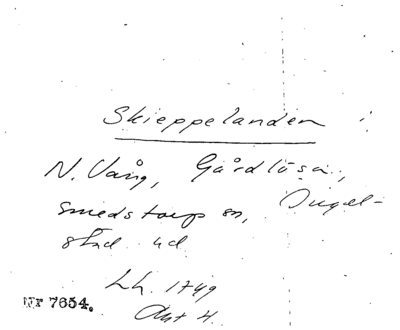 Skieppelanden
N. Vång, Gårdlösa,
Smedstorps sn, Ingel-
stad hd
Lh. 1749
Akt 4.
Nr 7654.